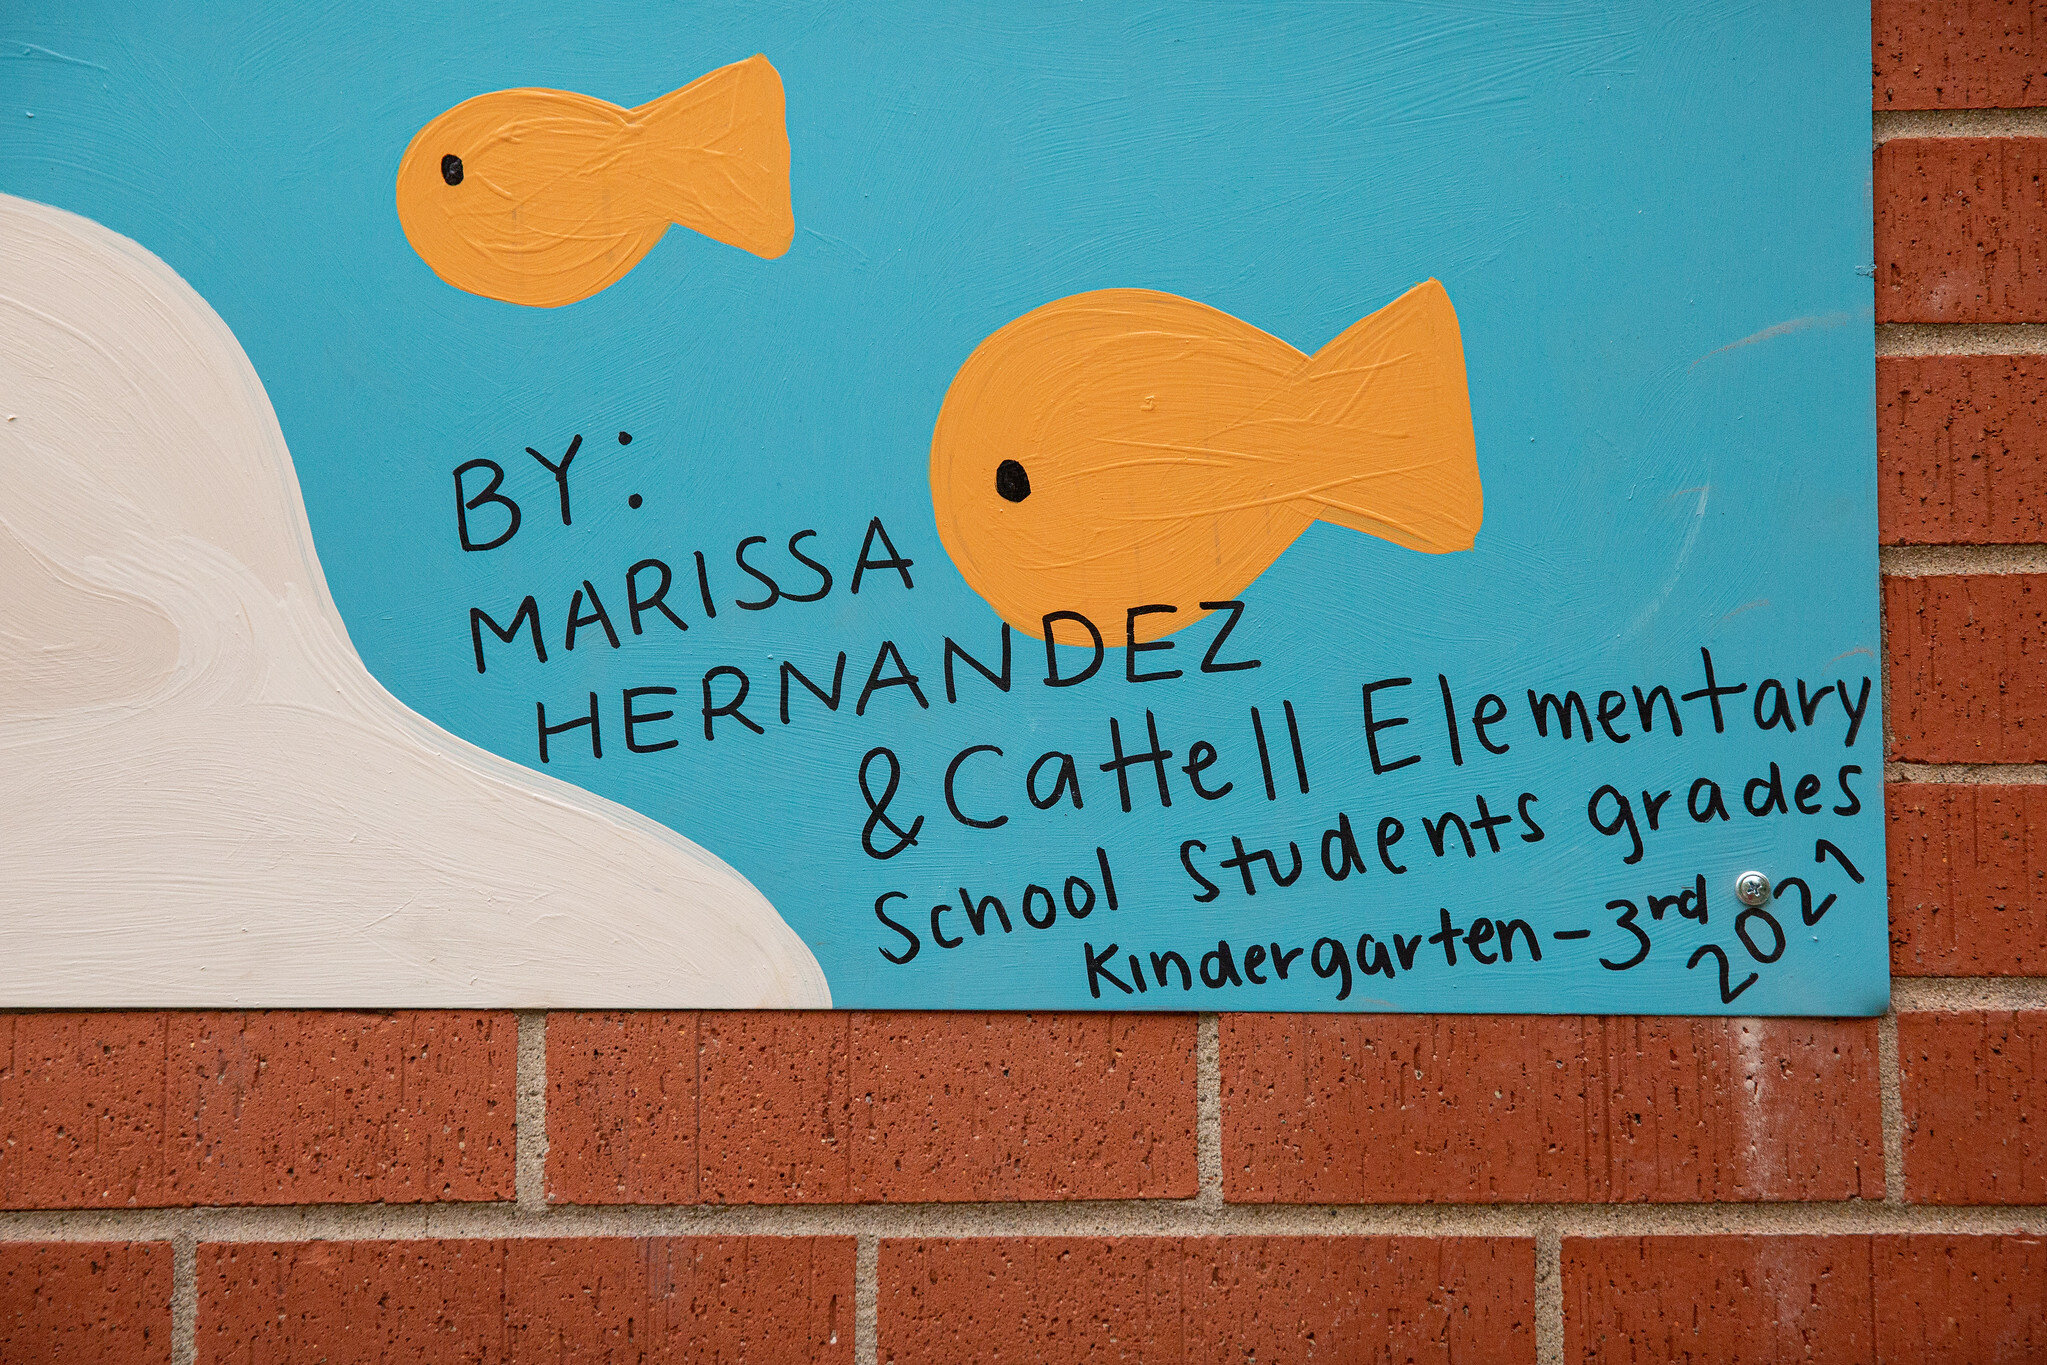 BY:
MARISSA
HERNANDEZ
& Cattell Elementary
School Students grades
Kindergarten - 3rd
2021